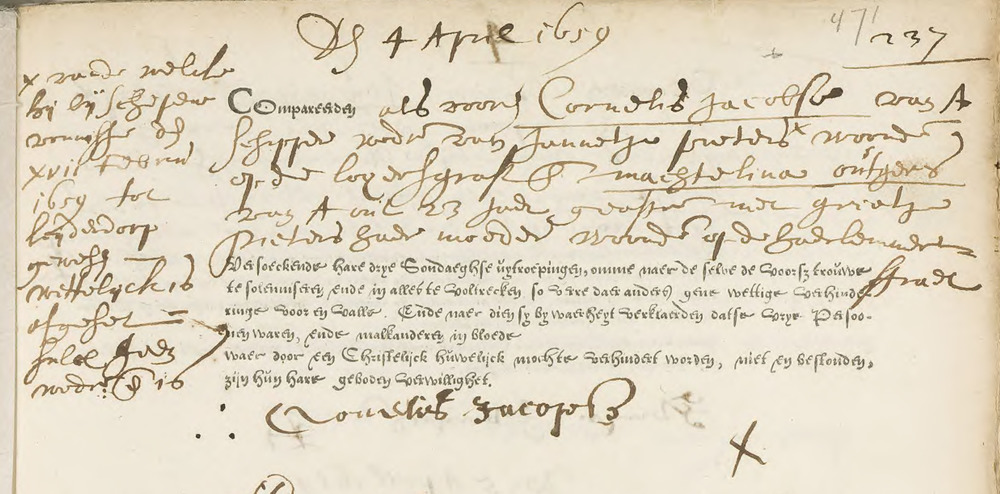 Den 4 April 1659
471
237
x van de welcke
bij
vonnisse den
xvii
1659 tot
leijderdorp
gewesen
wettelijck is
Compareerden als vooren Cornelis Jacobse van A
schipper wedr van Jannetje pieters x woonende
op de loyersgraft & Machtelina outgers
van A out 23 Jaer geasst met Grietje
Pieters haer moeder woonende op de haerlemmer=
straet
Versoeckende hare drye Sondaeghse uytroepingen, omme naer de selve de voorsz trouwe
te solemniseren ende in alles te voltrecken, so verre daer anders gene wettige verhinde
ringe voor en valle. Ende naer dien sy by waerheyt verklaerden datse vrye Persoo-
nen waren, ende malkanderen in bloede
waer door een Christelijck huwelijck mochte verhindert worden, niet en bestonden,
zijn hun hare geboden verwillighet.
Cornelis Jacopsz
X